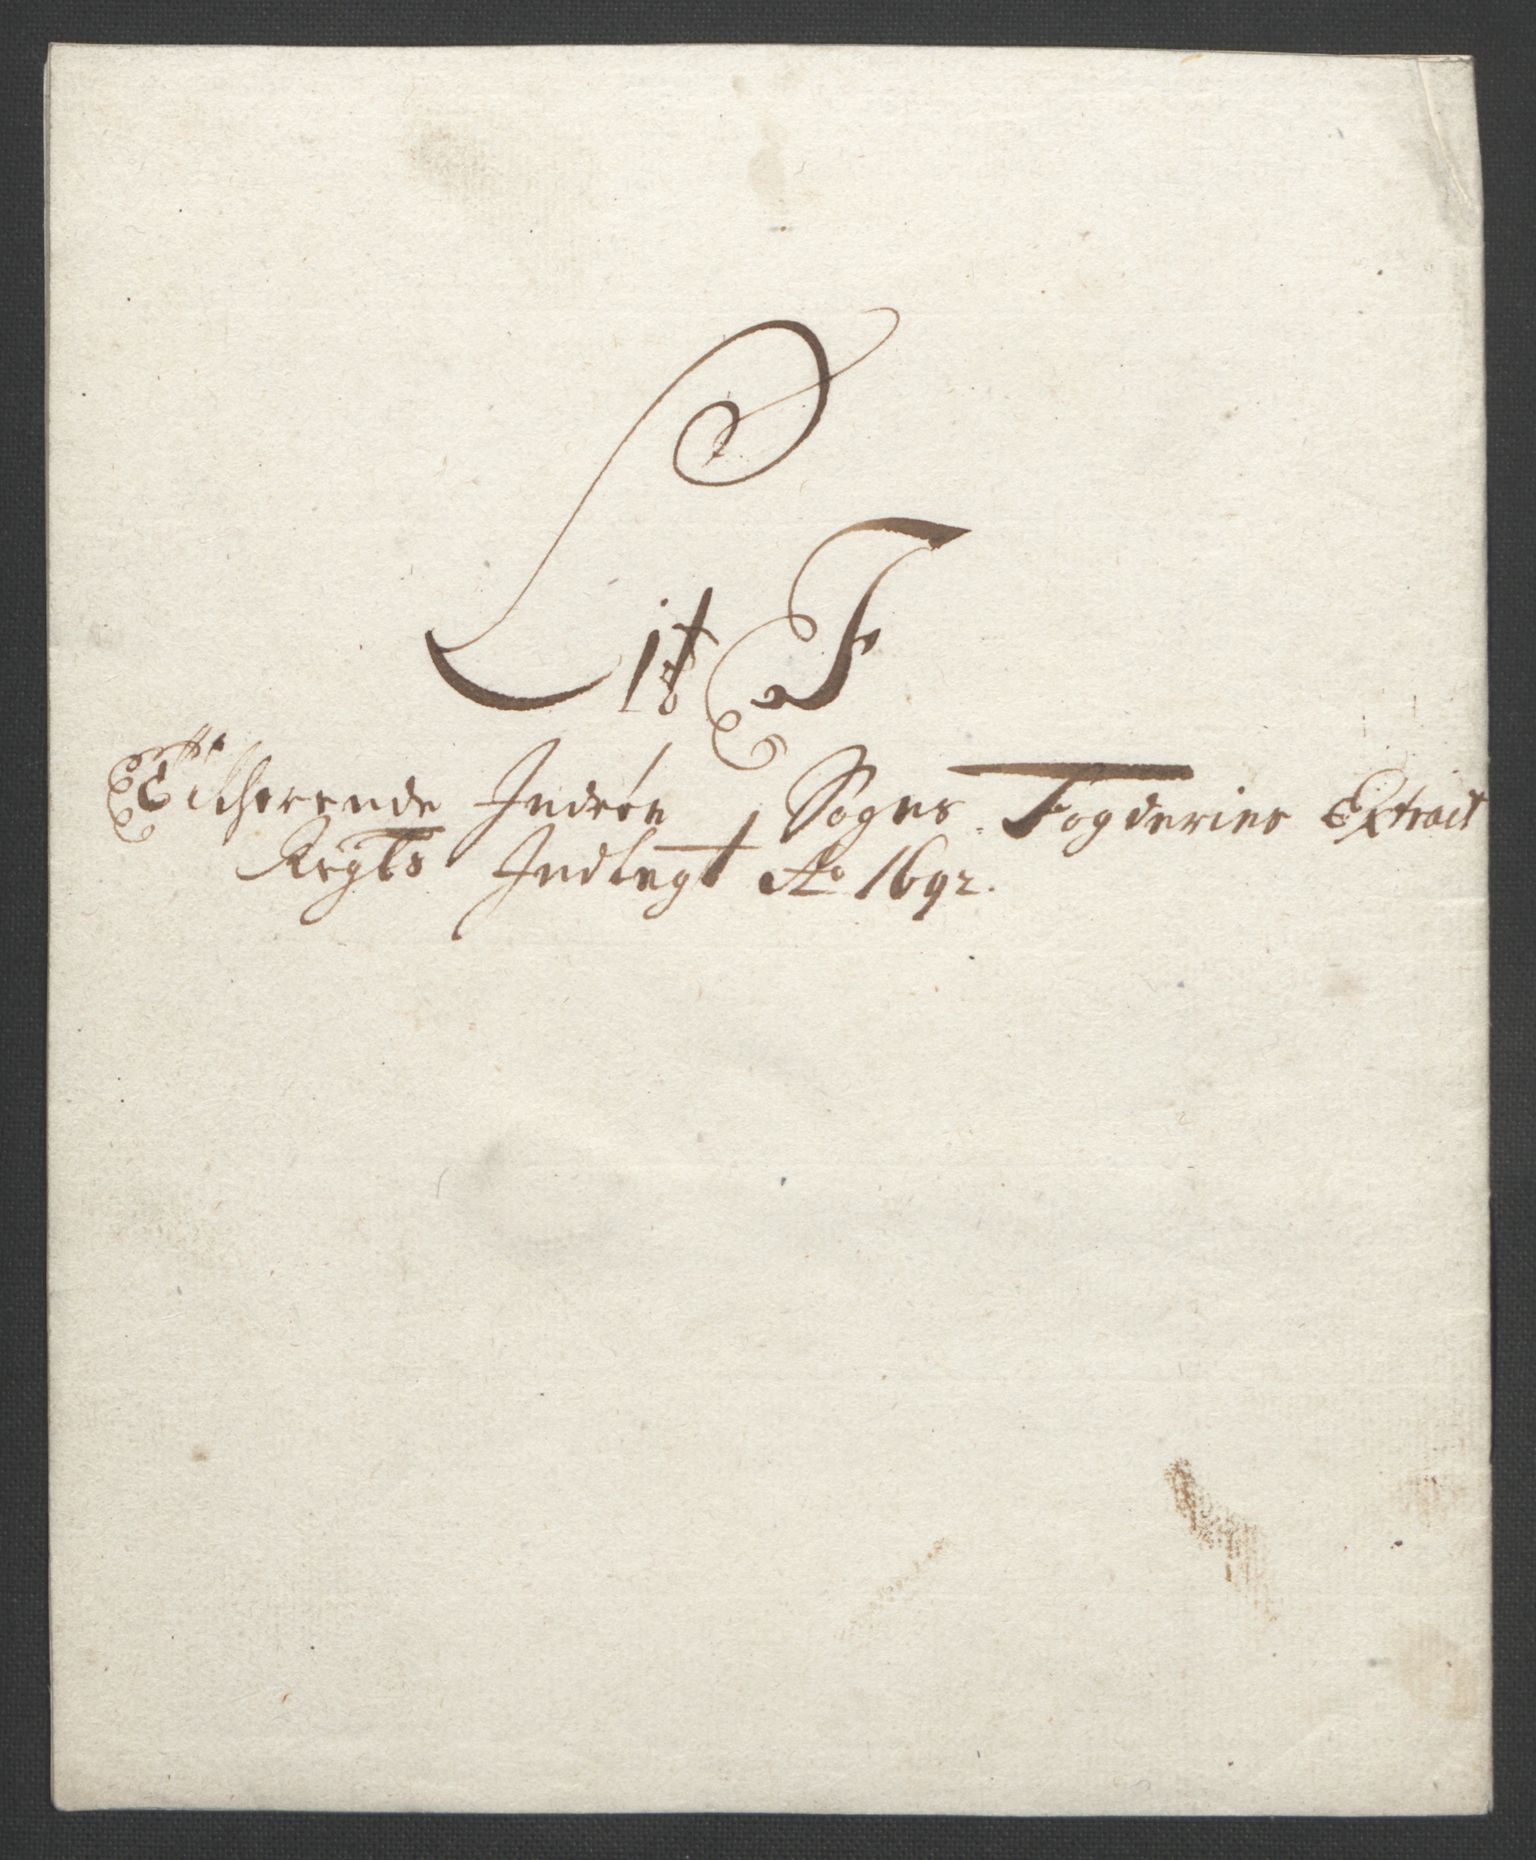 Litt F
Tilhørende Inderøen Sogns Fogderies Extract
Regts Indlegt Ao 1692.